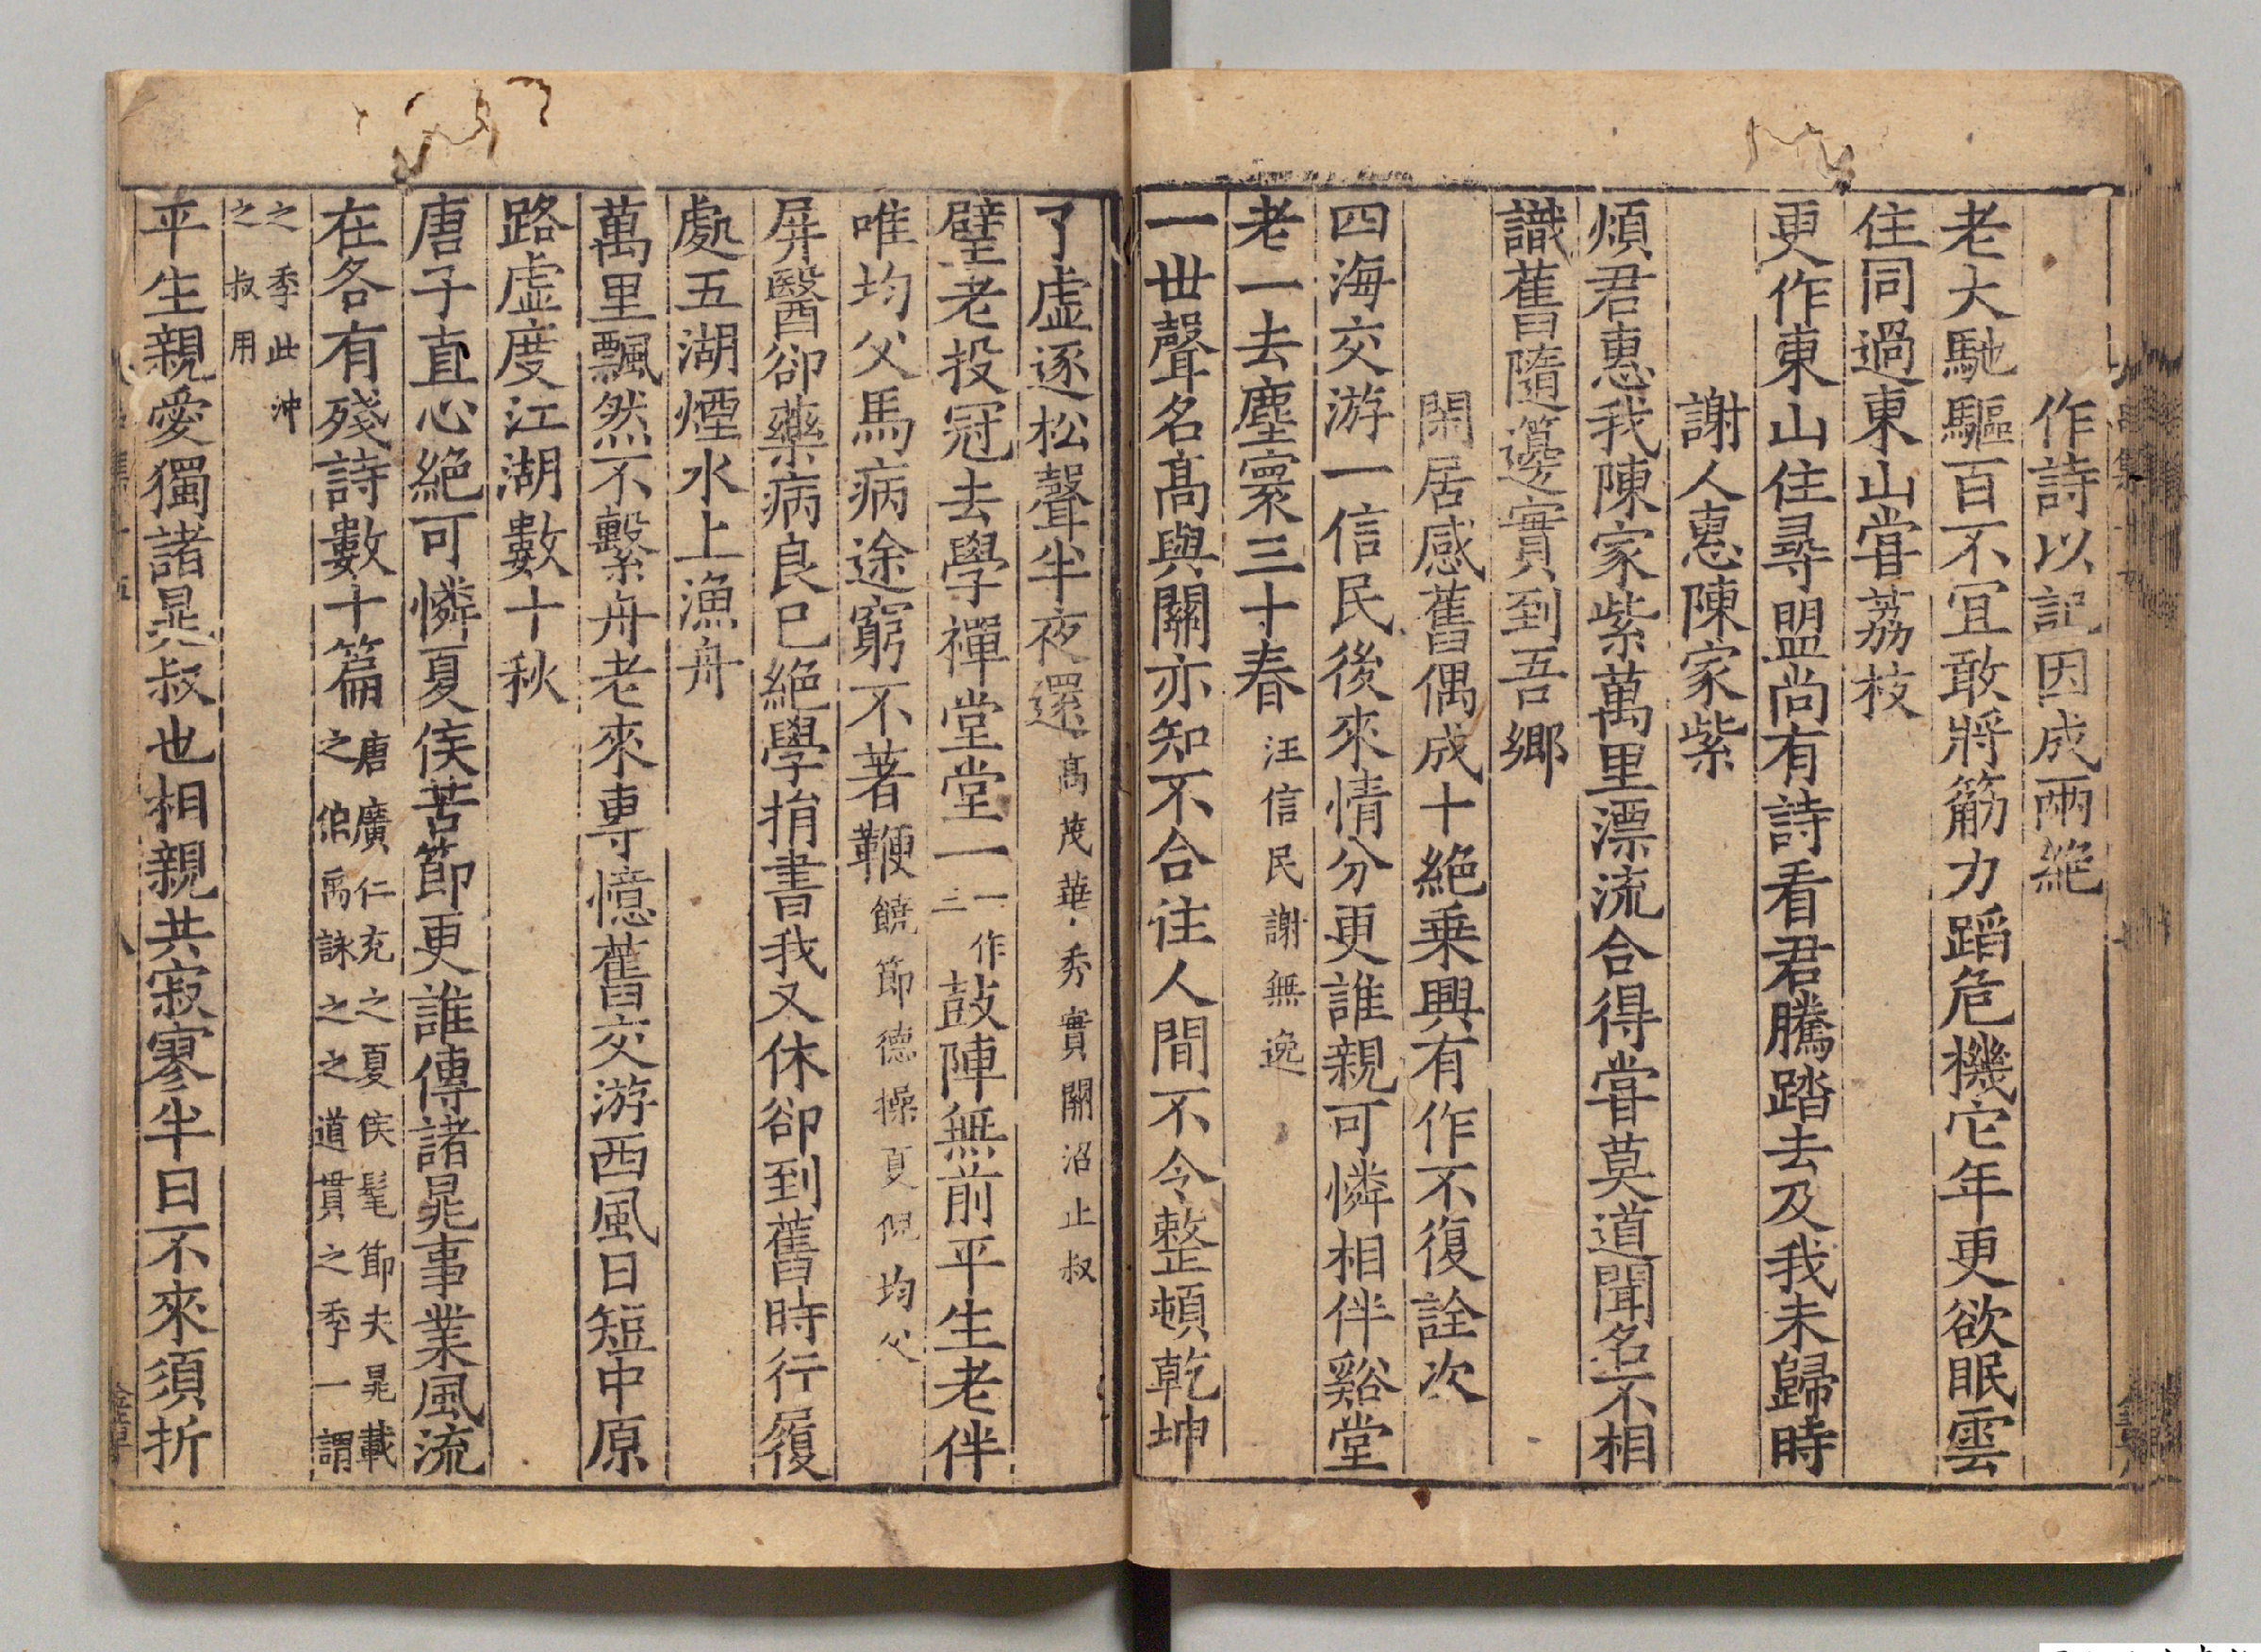 作詩以記因成兩絶
老大馳驅百不冝敢將筋力蹈危機它年更欲眠雲
住同過東山甞荔枝
更作東山住尋盟尚有詩看君騰踏去及我未歸時
謝人惠陳家紫
煩君惠我陳家紫萬里漂流合得甞莫道聞名不相
識舊隨籩實到吾鄉
閑居感舊偶成十絶乗興有作不復詮次
四海交游一信民後來情分更誰親可憐相伴谿堂
老一去塵寰三十春汪信民謝無逸
一丗聲名髙與關亦知不合住人間不令整頓乾坤
了虚逐松聲半夜還髙茂華秀實關沼止叔
壁老投冠去學禪堂堂一一作二鼓陣無前平生老伴
唯均父馬病途窮不著鞭饒節德操夏倪均父
屏醫卻藥病良已絶學捐書我又休卻到舊時行履
處五湖煙水上漁舟
萬里飄然不繫舟老來専憶舊交游西風日短中原
路虚度江湖數十秋
唐子直心絶可憐夏侯苦節更誰傳諸晁事業風流
在各有殘詩數十篇唐廣仁充之夏侯髦節夫晁載之伯禹詠之之道貫之季一謂
之季此沖之叔用
平生親愛獨諸晁叔也相親共寂寥半日不來須折